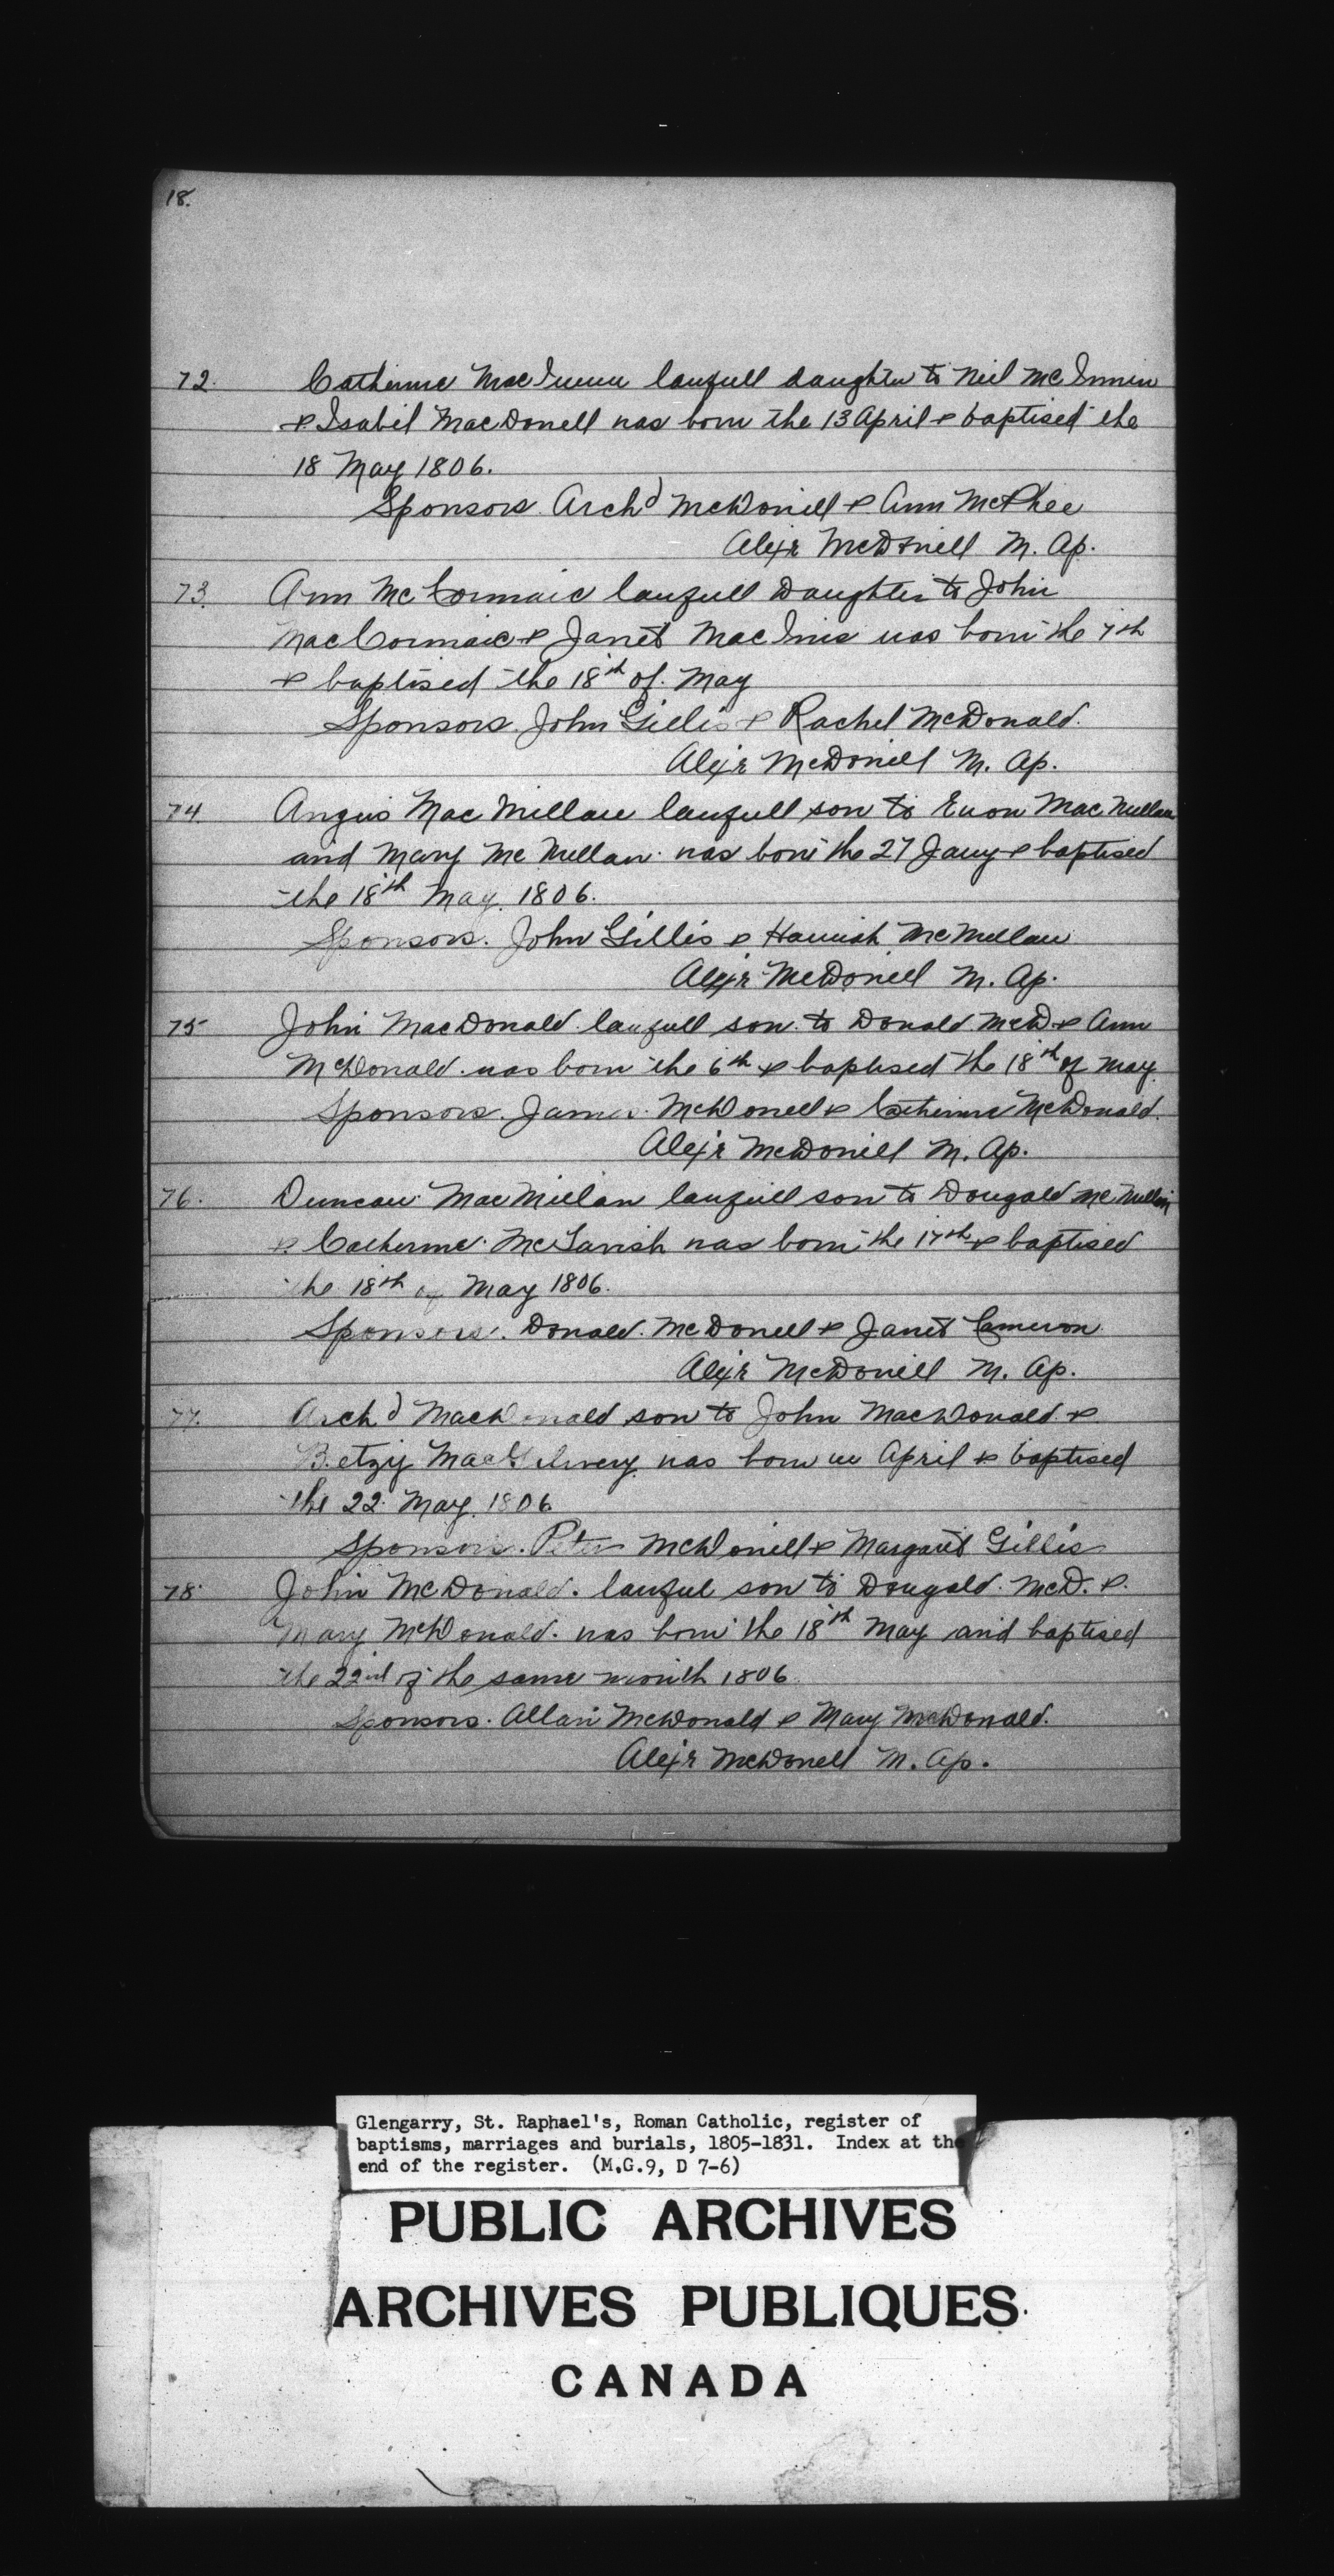 18.
72. Catherine MacInnin lawfull daughter to Neil McInnin
& Isabel MacDonell was born the 13 April & baptised the
18 May 1806.
Sponsors. Archd McDonell & Ann McPhee
Alexr McDonell M. Ap.
73. Ann McCormaic lawfull Daughter to John
MacCormaic & Janet MacInis was born the 7th
& baptised the 18th of May
Sponsors. John Gillis & Rachel McDonald.
Alexr McDonell M. Ap.
74. Angus MacMillan lawfull son to Euon MacMillan
and Mary McMillan was born the 27 Jany & baptised
the 18th May. 1806.
Sponsors. John Gillis & Hannah McMillan
Alexr McDonell M. Ap.
75 John MacDonald lawfull son to Donald McD & Ann
McDonald was born the 6th & baptised the 18th of May.
Sponsors. James McDonell & Catherine McDonald.
Alexr McDonell M. Ap.
76. Duncan MacMillan lawfull son to Dougald McMillan
& Catherine McTavish was born the 17th & baptised
the 18th of May 1806.
Sponsors. Donald McDonell & Janet Cameron
Alexr McDonell M. Ap.
77. Archd MacDonald son to John MacDonald &
Betzy MacGilvery was born in April & baptised
the 22 May. 1806.
Sponsors. Peter McDonell & Margaret Gillis
78. John McDonald. lawful son to Dougald McD. &
Mary McDonald was born the 18th May and baptised
the 22nd of the same month 1806
Sponsors. Allan McDonald & Mary McDonald.
Alexr McDonell M. Ap.
Glengarry, St. Raphael's, Roman Catholic, register of
baptisms, marriages and burials, 1805-1831. Index at the
end of the register. (M.G.9, D 7-6)
PUBLIC ARCHIVES
ARCHIVES PUBLIQUES
CANADA